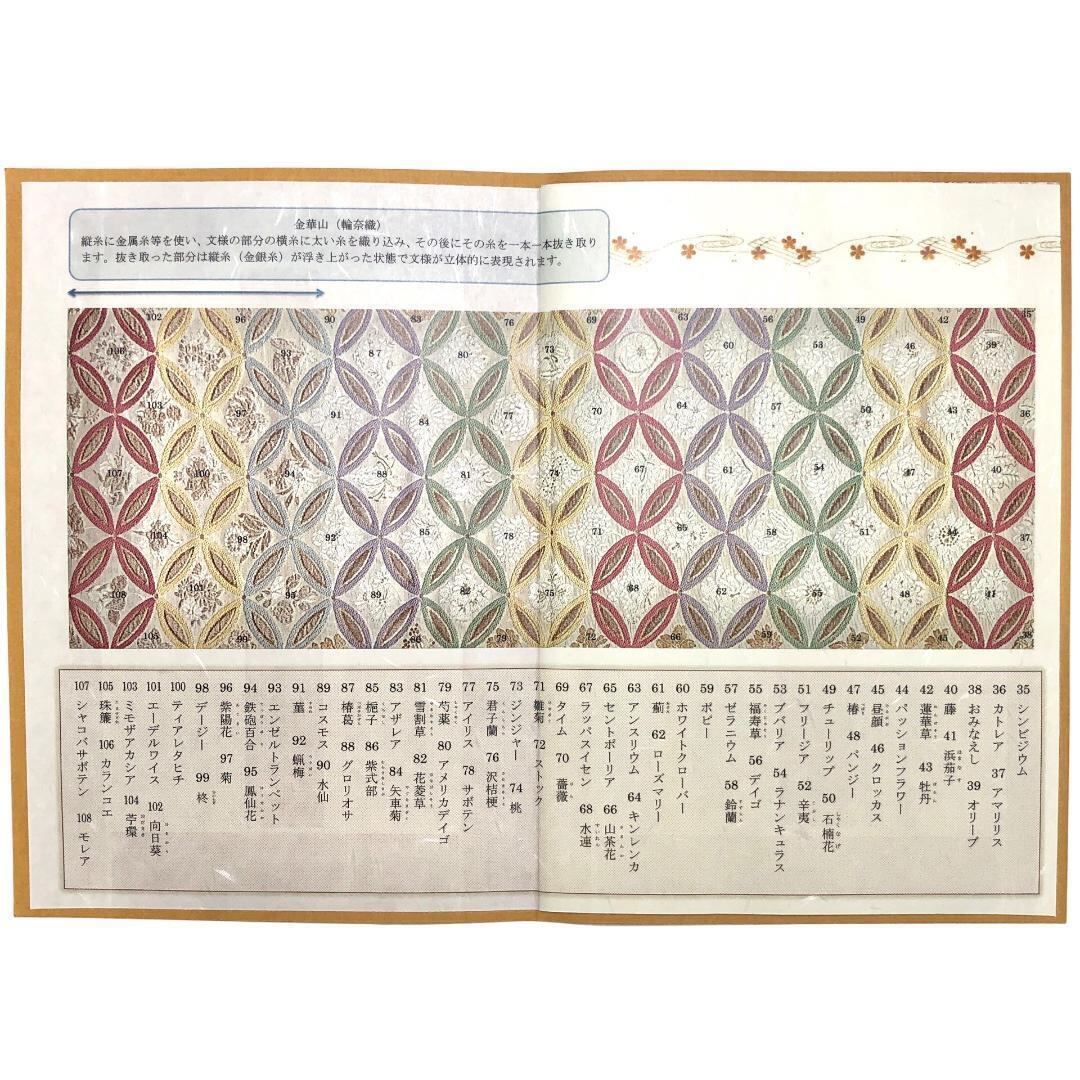 金華山（輪奈織）
縦糸に金属糸等を使い、文様の部分の横糸に太い糸を織り込み、その後にその糸を一本一本抜き取り
ます。抜き取った部分は縦糸（金銀糸）が浮き上がった状態で文様が立体的に表現されます。
102 96 90 83 76 69 63 56 49 42 35
106 93 87 80 73 60 53 46 39
103 97 91 84 77 70 64 57 50 43 36
107 100 94 88 81 74 67 61 54 47 40
104 98 92 85 78 71 65 58 51 44 37
108 101 95 89 82 75 68 62 55 48 41
105 99 86 79 72 66 59 52 45 38
35 シンビジウム
36 カトレア 37 アマリリス
38 おみなえし 39 オリーブ
40 藤 41 浜茄子
42 蓮華草 43 牡丹
44 パッションフラワー
45 昼顔 46 クロッカス
47 椿 48 パンジー
49 チューリップ 50 石楠花
51 フリージア 52 辛夷
53 ブバリア 54 ラナンキュラス
55 福寿草 56 デイゴ
57 ゼラニウム 58 鈴蘭
59 ポピー
60 ホワイトクローバー
61 薊 62 ローズマリー
63 アンスリウム 64 キンレンカ
65 セントポーリア 66 山茶花
67 ラッパスイセン 68 水連
69 タイム 70 薔薇
71 雛菊 72 ストック
73 ジンジャー 74 桃
75 君子蘭 76 沢桔梗
77 アイリス 78 サボテン
79 芍薬 80 アメリカデイゴ
81 雪割草 82 花菱草
83 アザレア 84 矢車菊
85 梔子 86 紫式部
87 椿葛 88 グロリオサ
89 コスモス 90 水仙
91 菫 92 蝋梅
93 エンゼルトランペット
94 鉄砲百合 95 鳳仙花
96 紫陽花 97 菊
98 デージー 99 柊
100 ティアレタヒチ
101 エーデルワイス 102 向日葵
103 ミモザアカシア 104 苧環
105 珠簾 106 カランコエ
107 シャコバサボテン 108 モレア